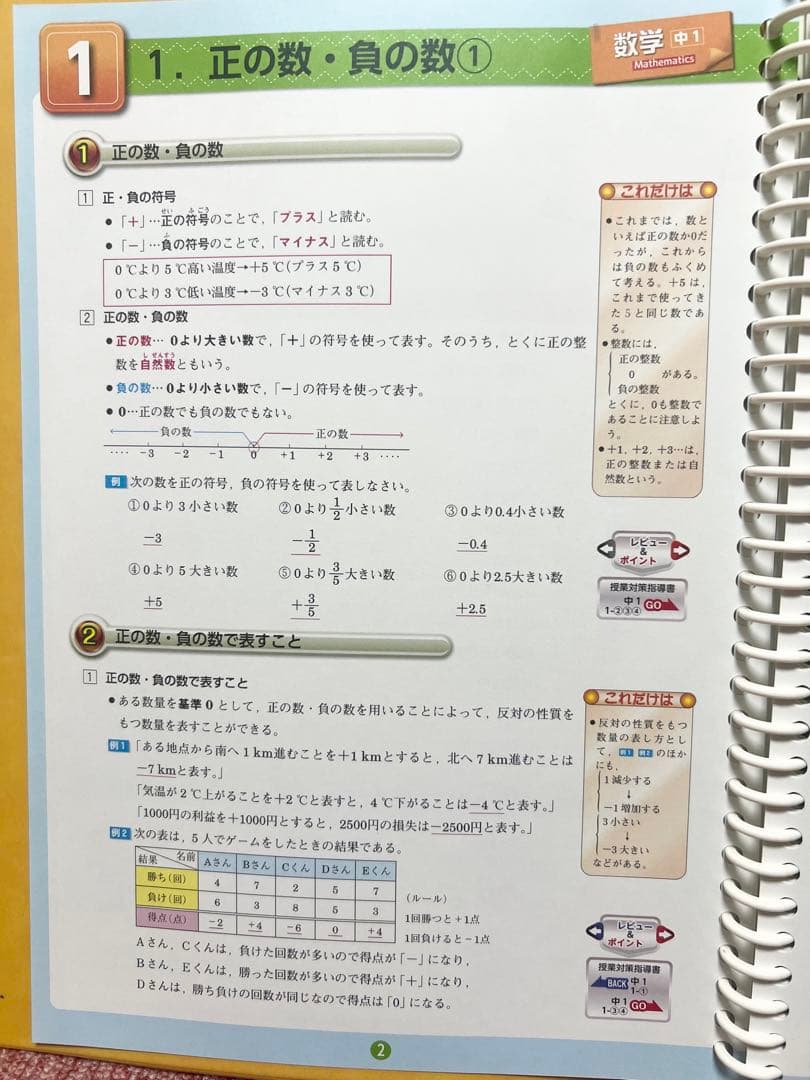 1
1．正の数・負の数①
数学 中1
Mathematics
1 正の数・負の数
1 正・負の符号
●「＋」…正の符号のことで，「プラス」と読む。
●「－」…負の符号のことで，「マイナス」と読む。
0℃より5℃高い温度→＋5℃(プラス5℃)
0℃より3℃低い温度→－3℃(マイナス3℃)
2 正の数・負の数
●正の数… 0より大きい数で，「＋」の符号を使って表す。そのうち，とくに正の整
数を自然数ともいう。
●負の数… 0より小さい数で，「－」の符号を使って表す。
●0…正の数でも負の数でもない。
負の数 正の数
‥‥ －3 －2 －1 0 ＋1 ＋2 ＋3 ‥‥
例 次の数を正の符号，負の符号を使って表しなさい。
①0より3小さい数 ②0より1/2小さい数 ③0より0.4小さい数
－3 －1/2 －0.4
④0より5大きい数 ⑤0より3/5大きい数 ⑥0より2.5大きい数
＋5 ＋3/5 ＋2.5
これだけは
●これまでは，数と
いえば正の数か0だ
ったが，これから
は負の数もふくめ
て考える。＋5は，
これまで使ってき
た5と同じ数であ
る。
●整数には，
正の整数
0 がある。
負の整数
とくに，0も整数で
あることに注意しよ
う。
●＋1，＋2，＋3…は，
正の整数または自
然数という。
レビュー
&
ポイント
授業対策指導書
中1
1-②③④ GO
2 正の数・負の数で表すこと
1 正の数・負の数で表すこと
●ある数量を基準0として，正の数・負の数を用いることによって，反対の性質を
もつ数量を表すことができる。
例1「ある地点から南へ1km進むことを＋1kmとすると，北へ7km進むことは
－7kmと表す。」
「気温が2℃上がることを＋2℃と表すと，4℃下がることは－4℃と表す。」
「1000円の利益を＋1000円とすると，2500円の損失は－2500円と表す。」
例2 次の表は，5人でゲームをしたときの結果である。
結果 名前 Aさん Bさん Cくん Dさん Eくん
勝ち(回) 4 7 2 5 7
負け(回) 6 3 8 5 3
得点(点) －2 ＋4 －6 0 ＋4
(ルール)
1回勝つと＋1点
1回負けると－1点
Aさん，Cくんは，負けた回数が多いので得点が「－」になり，
Bさん，Eくんは，勝った回数が多いので得点が「＋」になり，
Dさんは，勝ち負けの回数が同じなので得点は「0」になる。
これだけは
●反対の性質をもつ
数量の表し方とし
て，例1 例2 のほか
にも，
1減少する
↓
－1増加する
3小さい
↓
－3大きい
などがある。
レビュー
&
ポイント
授業対策指導書
BACK 中1
1-①
中1
1-③④ GO
2